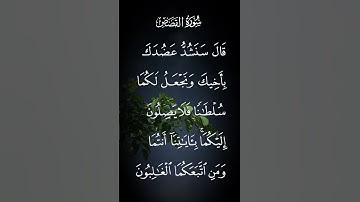 سُورَةُ القَصَصِ
قَالَ سَنَشُدُّ عَضُدَكَ
بِأَخِيكَ وَنَجْعَلُ لَكُمَا
سُلْطَـٰنًا فَلَا يَصِلُونَ
إِلَيْكُمَا ۚ بِـَٔايَـٰتِنَآ أَنتُمَا
وَمَنِ ٱتَّبَعَكُمَا ٱلْغَـٰلِبُونَ